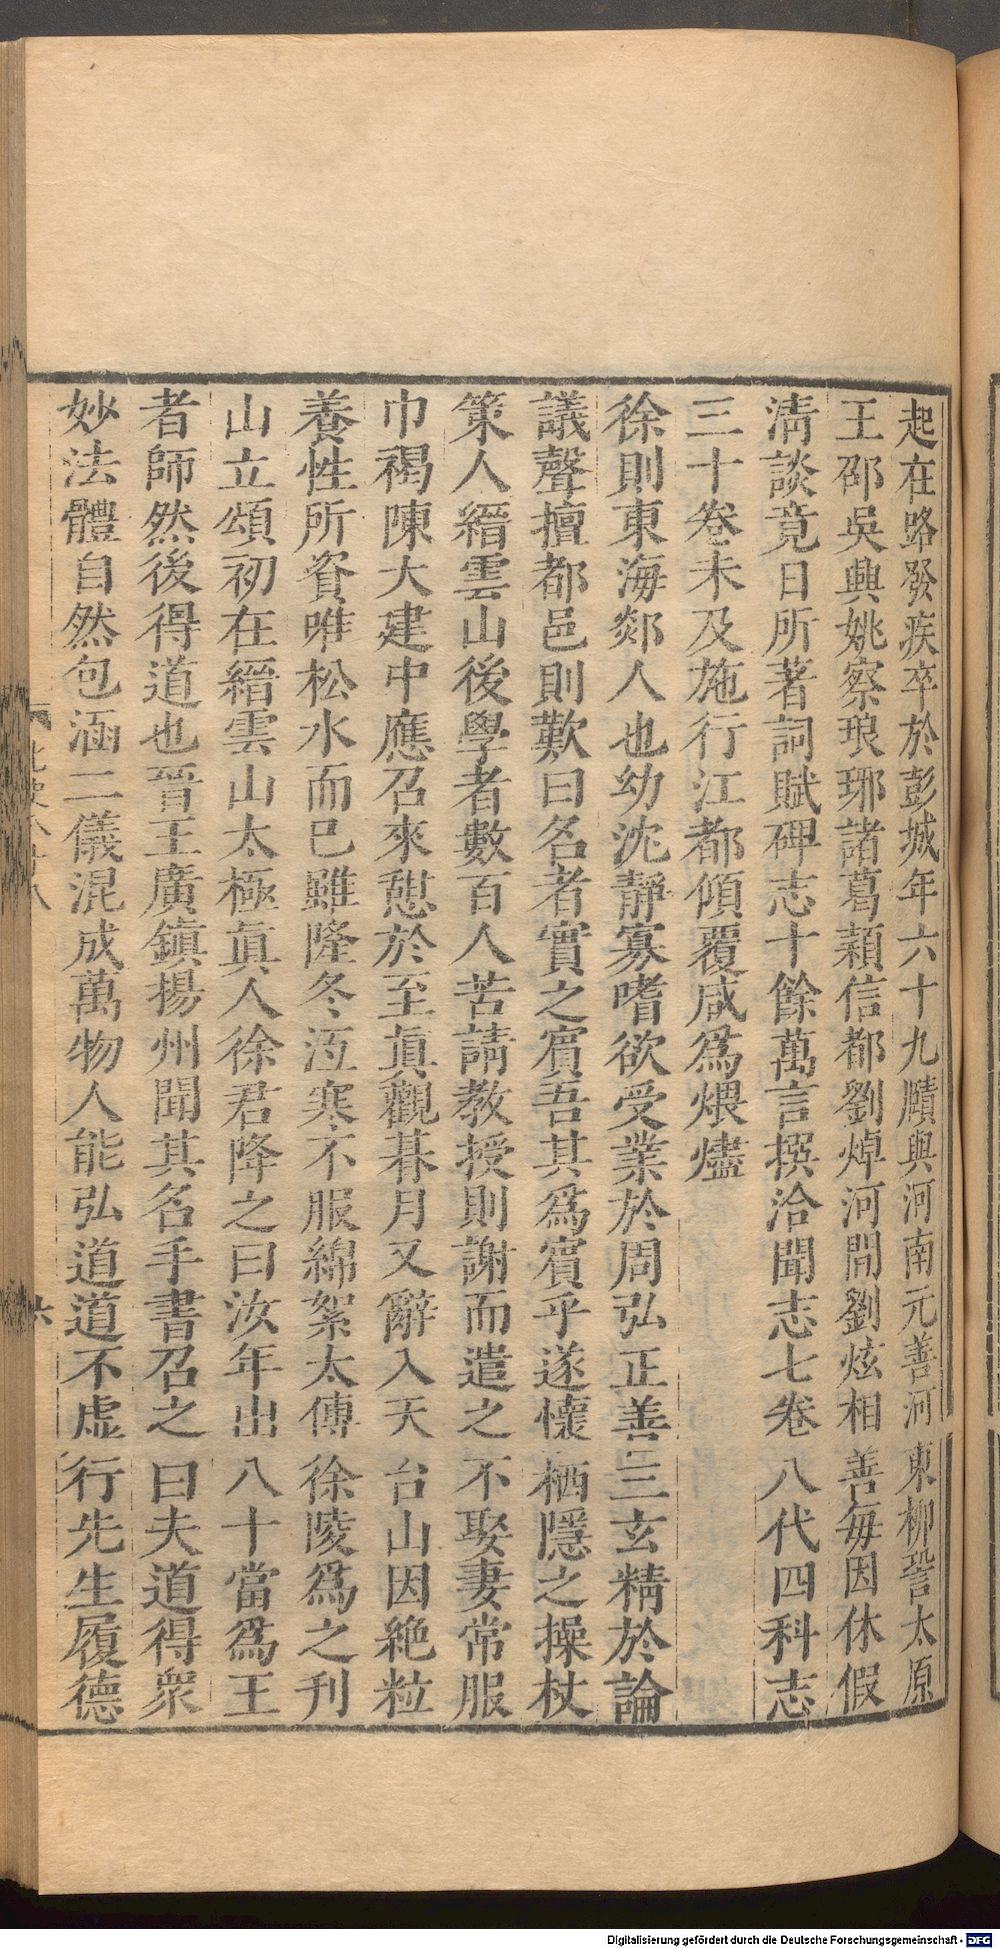 起在路發疾卒於彭城年六十九賾與河南元善河東柳䛒太原
王邵吳興姚察琅琊諸葛潁信都劉焯河間劉炫相善每因休假
清談竟日所著詞賦碑志十餘萬言撰洽聞志七卷八代四科志
三十卷未及施行江都傾覆咸為煨燼
徐則東海郯人也幼沈靜寡嗜欲受業於周弘正善三玄精於論
議聲擅都邑則歎曰名者實之賓吾其為賓乎遂懷栖隱之操杖
策入縉雲山後學者數百人苦請教授則謝而遣之不娶妻常服
巾褐陳大建中應召來憇於至眞觀朞月又辭入天台山因絶粒
養性所資唯松水而已雖隆冬沍寒不服綿絮太傅徐陵為之刊
山立頌初在縉雲山太極眞人徐君降之曰汝年出八十當為王
者師然後得道也晉王廣鎮揚州聞其名手書召之曰夫道得衆
妙法體自然包涵二儀混成萬物人能弘道道不虛行先生履德
六
Digitalisierung gefördert durch die Deutsche Forschungsgemeinschaft - DFG